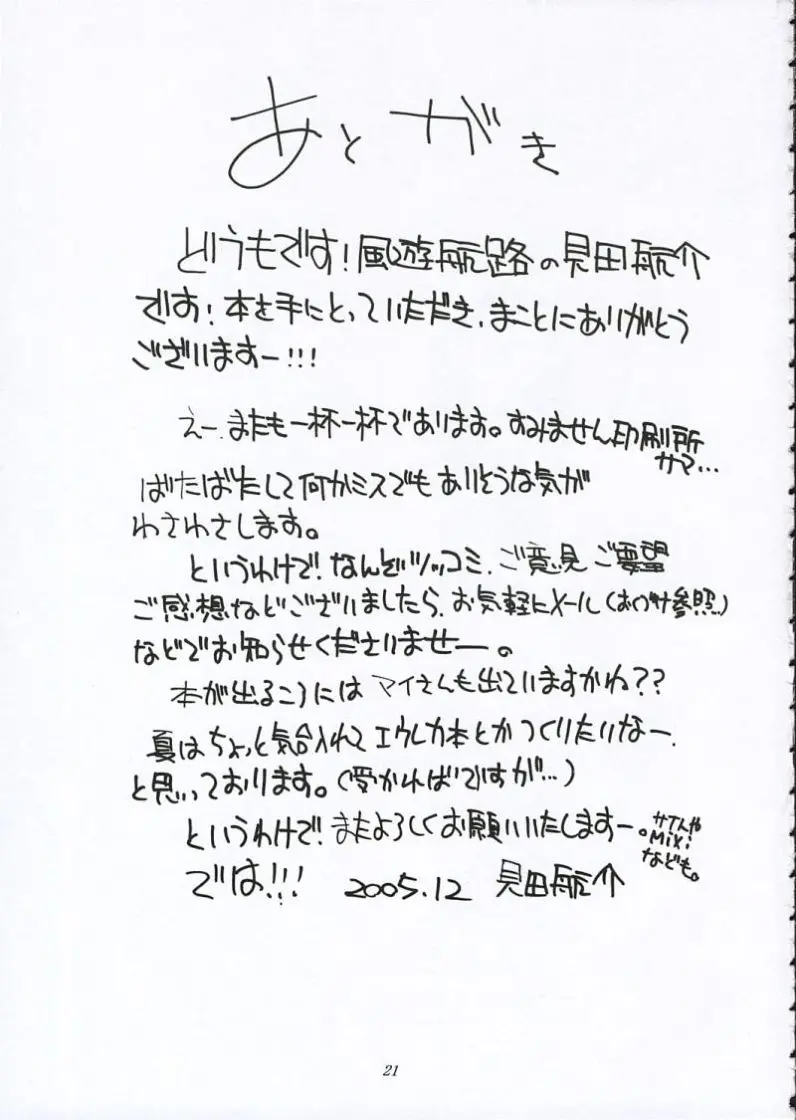 あとがき
どうもです!風遊航路の見田航介
です!本を手にとっていただき、まことにありがとう
ございますー!!!
えー、またも一杯一杯であります。すみません印刷所
サマ…
ばたばたして何かミスでもありそうな気が
わさわさします。
というわけで!なんぞツッコミ、ご意見ご要望
ご感想などございましたら、お気軽にメール(おくづけ参照)
などでお知らせくださいませー。
本が出るころにはマイさんも出ていますかね??
夏はちょっと気合入れてエウレカ本とかつくりたいなー、
と思っております。(受かればですが…)
というわけで!またよろしくお願いいたしますー。
サイトや
MiXi
なども。
では!!! 2005.12 見田航介
21